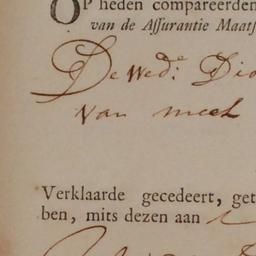 OP heden compareerden
van de Assurantie Maats
De Wed.e Dio
van meel
Verklaarde gecedeert, get
ben, mits dezen aan